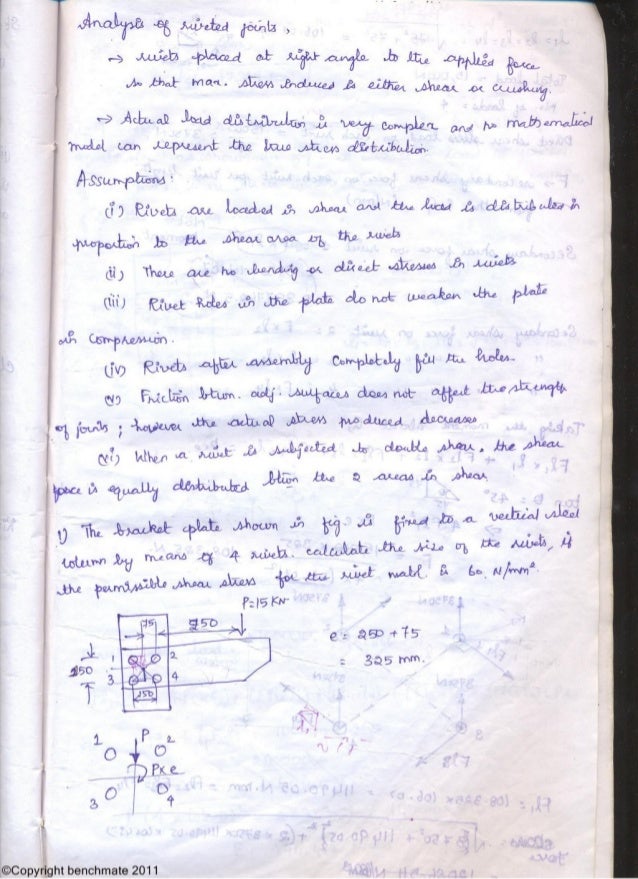 Analysis of riveted joints,
→ rivets placed at right angle to the applied force
so that max. stress induced is either shear or crushing.
→ Actual load distribution is very complex and no mathematical
model can represent the true stress distribution.
Assumptions:
(i) Rivets are loaded in shear and the load is distributed in
proportion to the shear area of the rivets
(ii) There are no bending or direct stresses in rivets
(iii) Rivet holes in the plate do not weaken the plate
in compression.
(iv) Rivets after assembly completely fill the holes.
(v) Friction btwn. adj. surfaces does not affect the strength
of joints; however the actual stress produced decreases
(vi) When a rivet is subjected to double shear, the shear
force is equally distributed btwn the 2 areas in shear
1) The bracket plate shown in fig is fixed to a vertical steel
column by means of 4 rivets. calculate the size of the rivets, if
the permissible shear stress for the rivet matl. is 60 N/mm².
P=15 KN
75 250
e = 250 + 75
= 325 mm.
1 2
150
3 4
150
1 P 2
Pxe
3 4
©Copyright benchmate 2011